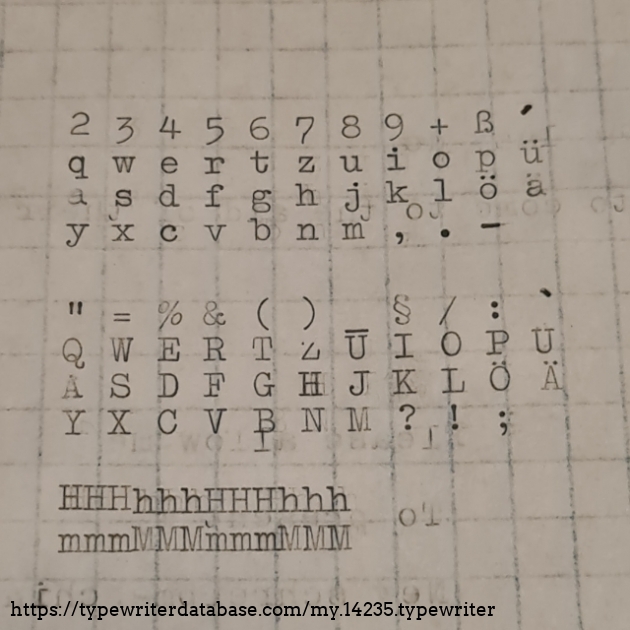 2 3 4 5 6 7 8 9 + ß ´
q w e r t z u i o p ü
a s d f g h j k l ö ä
y x c v b n m , . -
" = % & ( ) _ § / : `
Q W E R T Z U I O P U
A S D F G H J K L Ö Ä
Y X C V B N M ? ! ;
HHHhhhHHHhhh
mmmMMMmmmMMM
https://typewriterdatabase.com/my.14235.typewriter